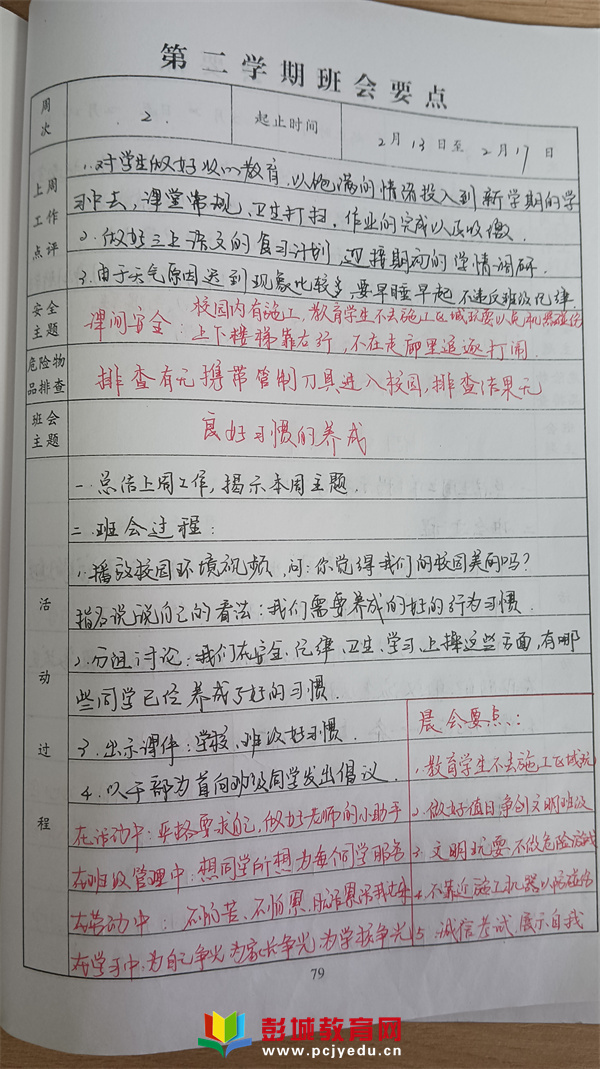 第二学期班会要点
周次 2 起止时间 2月13日至2月17日
上周工作点评
1.对学生做好收心教育,以饱满的情绪投入到新学期的学
习中去,课堂常规、卫生打扫、作业的完成以及收缴.
2.做好三上语文的复习计划,迎接期初的学情调研.
3.由于天气原因迟到现象比较多,要早睡早起,不违反班级纪律.
安全主题
课间安全:校园内有施工,教育学生不去施工区域玩耍以免机器碰伤
上下楼梯靠右行,不在走廊里追逐打闹.
危险物品排查 排查有无携带管制刀具进入校园,排查结果无
班会主题 良好习惯的养成
活动过程
一.总结上周工作,揭示本周主题.
二.班会过程:
1.播放校园环境视频,问:你觉得我们的校园美丽吗?
指名说说自己的看法:我们需要养成的好的行为习惯.
2.分组讨论:我们在安全、纪律、卫生、学习、上操这些方面,有哪
些同学已经养成了好的习惯.
3.出示课件:学校、班级好习惯.
4.以干部为首向班级同学发出倡议.
在活动中:严格要求自己,做好老师的小助手
在班级管理中:想同学所想为每个同学服务
在劳动中:不怕苦、不怕累,
在学习中:为自己争光为家长争光为学校争光
晨会要点:
1.教育学生不去施工区域玩
2.做好值日争创文明班级
3.文明玩耍不做危险游戏
4.不靠近施工机器以防碰伤
5.诚信考试,展示自我
79
彭城教育网
www.pcjyedu.cn